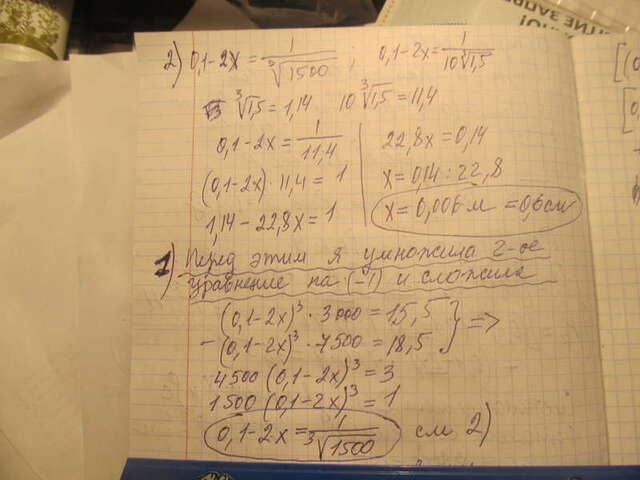 ИТНЕ ЗАПРЕ
НО!
2) 0,1-2x = 1/∛1500 ; 0,1-2x = 1/(10∛1,5)
∛1,5 = 1,14 10∛1,5 = 11,4
0,1-2x = 1/11,4
(0,1-2x)·11,4 = 1
1,14-22,8x = 1
22,8x = 0,14
x = 0,14 : 22,8
x = 0,006 м = 0,6 см
1) Перед этим я умножила 2-ое
уравнение на (-1) и сложила
(0,1-2x)³ · 3000 = 15,5 } =>
- (0,1-2x)³ · 7500 = 18,5
4500 (0,1-2x)³ = 3
1500 (0,1-2x)³ = 1
0,1-2x = 1/∛1500 см 2)